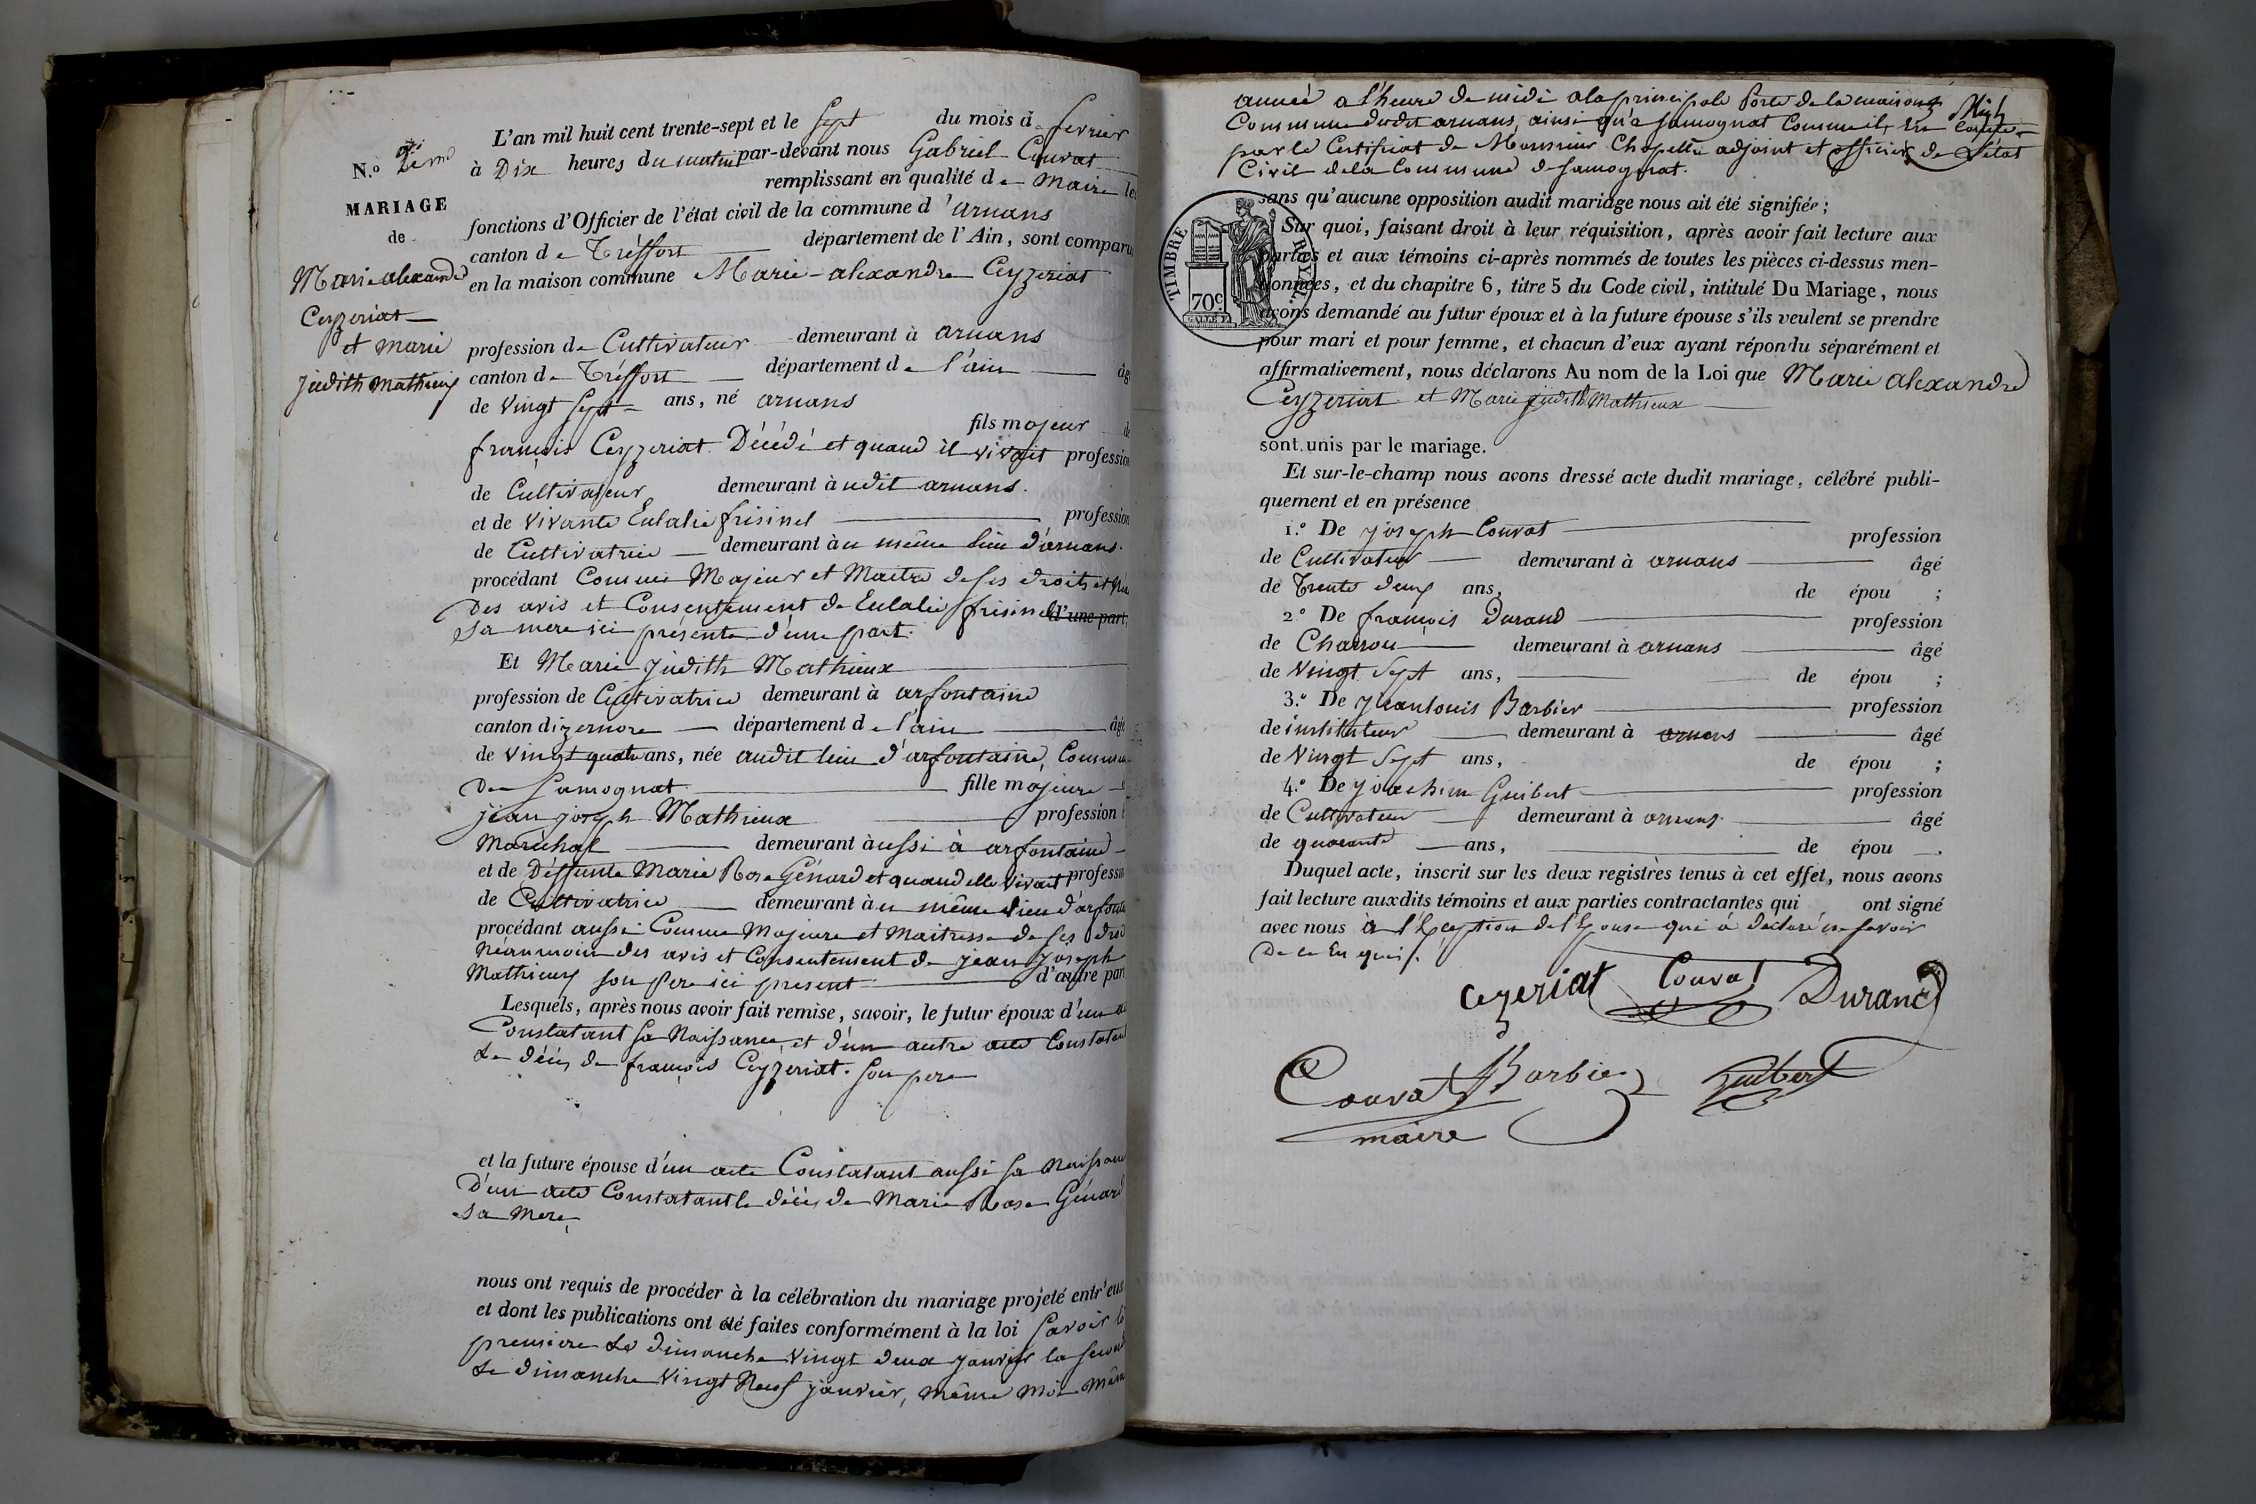 N.o 2eme
MARIAGE
de
Marie alexandre
Ceyzeriat
et marie
judith Mathieux
L'an mil huit cent trente-sept et le sept du mois d fevrier
à Dix heures du matin par-devant nous Gabriel Couvat
remplissant en qualité de Maire les
fonctions d'Officier de l'état civil de la commune d'arnans
canton de Tréffort département de l'Ain, sont comparu
en la maison commune Marie-alexandre Ceyzeriat
profession de Cultivateur demeurant à arnans
canton de Tréffort département de l'ain âgé
de vingt sept ans, né arnans
fils majeur de
françois Ceyzeriat Décédé et quand il vivait profession
de Cultivateur demeurant à udit arnans.
et de vivante Eulalie frisinel profession
de Cultivatrice demeurant à u même lieu d'arnans.
procédant Comme Majeur et Maitre de ses droits et
Des avis et Consentement de Eulalie frisinel d'une part,
sa mere ici présente d'une part.
Et Marie judith Mathieux
profession de Cultivatrice demeurant à arfontaine
canton dizernore département de l'ain âgé
de vingt quatre ans, née audit lieu d'arfontaine, Commune
De Samognat fille majeure
jean joseph Mathieux profession
Maréchal demeurant à ussi à arfontaine
et de Déffunte Marie Rose Génard et quand elle vivait profession
de Cultivatrice demeurant à u même lieu d'arfont
procédant aussi Comme Majeure et Maitresse de ses droi
Néanmoin des avis et Consentement de jean joseph
Mathieux son pere ici présent d'autre part
Lesquels, après nous avoir fait remise, savoir, le futur époux d'un a
Constatant sa Naissance, et d'un autre acte Constatant
Le décès de françois Ceyzeriat. son pere
et la future épouse d'un acte Constatant aussi sa Naissance
D'un acte Constatant le décès de Marie Rose Génard
sa Mere
nous ont requis de procéder à la célébration du mariage projeté entr'eux
et dont les publications ont été faites conformément à la loi savoir la
premiere Le Dimanche vingt deux janvier la second
Le dimanche vingt Neuf janvier, même mois même
année a l'heure de midi a la principale Porte de la maison
Commune dudit arnans, ainsi qu'a samognat Comme il en Conste
par le Certificat de Monsieur Chapelle adjoint et officier de L'état
Civil de la Commune de samognat.
TIMBRE ROYAL.
70c
sans qu'aucune opposition audit mariage nous ait été signifiée;
Sur quoi, faisant droit à leur réquisition, après avoir fait lecture aux
parties et aux témoins ci-après nommés de toutes les pièces ci-dessus men-
tionnées, et du chapitre 6, titre 5 du Code civil, intitulé Du Mariage, nous
avons demandé au futur époux et à la future épouse s'ils veulent se prendre
pour mari et pour femme, et chacun d'eux ayant répondu séparément et
affirmativement, nous déclarons Au nom de la Loi que Marie alexandre
Ceyzeriat et Marie judith Mathieux
sont unis par le mariage.
Et sur-le-champ nous avons dressé acte dudit mariage, célébré publi-
quement et en présence
1.o De joseph Couvat profession
de Cultivateur demeurant à arnans âgé
de Trente deux ans, de épou ;
2o De françois Durand profession
de Charron demeurant à arnans âgé
de vingt sept ans, de épou ;
3.o De jean louis Barbier profession
de instituteur demeurant à arnans âgé
de vingt sept ans, de épou ;
4.o De joachim Guibert profession
de Cultivateur demeurant à arnans âgé
de quarante ans, de épou .
Duquel acte, inscrit sur les deux registres tenus à cet effet, nous avons
fait lecture auxdits témoins et aux parties contractantes qui ont signé
avec nous à l'Exception de l'Epouse qui a déclaré ne savoir
De ce En quis.
Cezeriat Couvat Durand
Couvat Barbier Guibert
maire